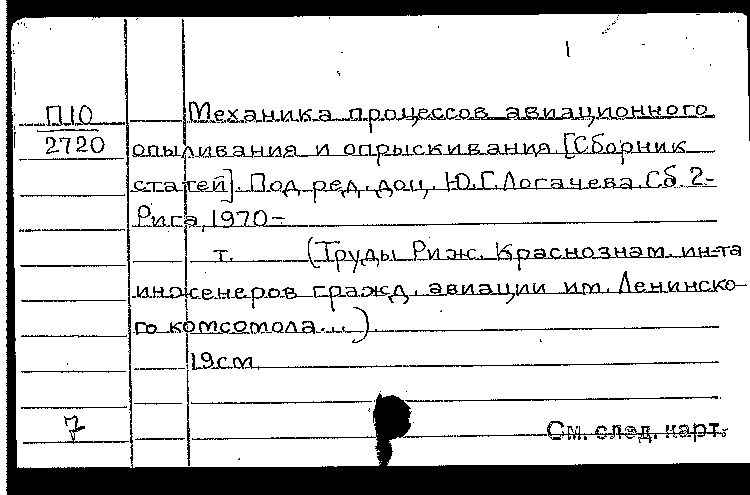 1
П10
2720
Механика процессов авиационного
опыливания и опрыскивания. [Сборник
статей]. Под ред. доц. Ю.Г. Логачева. Сб. 2-
Рига, 1970-
т. (Труды Риж. Краснознам. ин-та
инженеров гражд. авиации им. Ленинско-
го комсомола...)
19см.
7
См. след. карт.